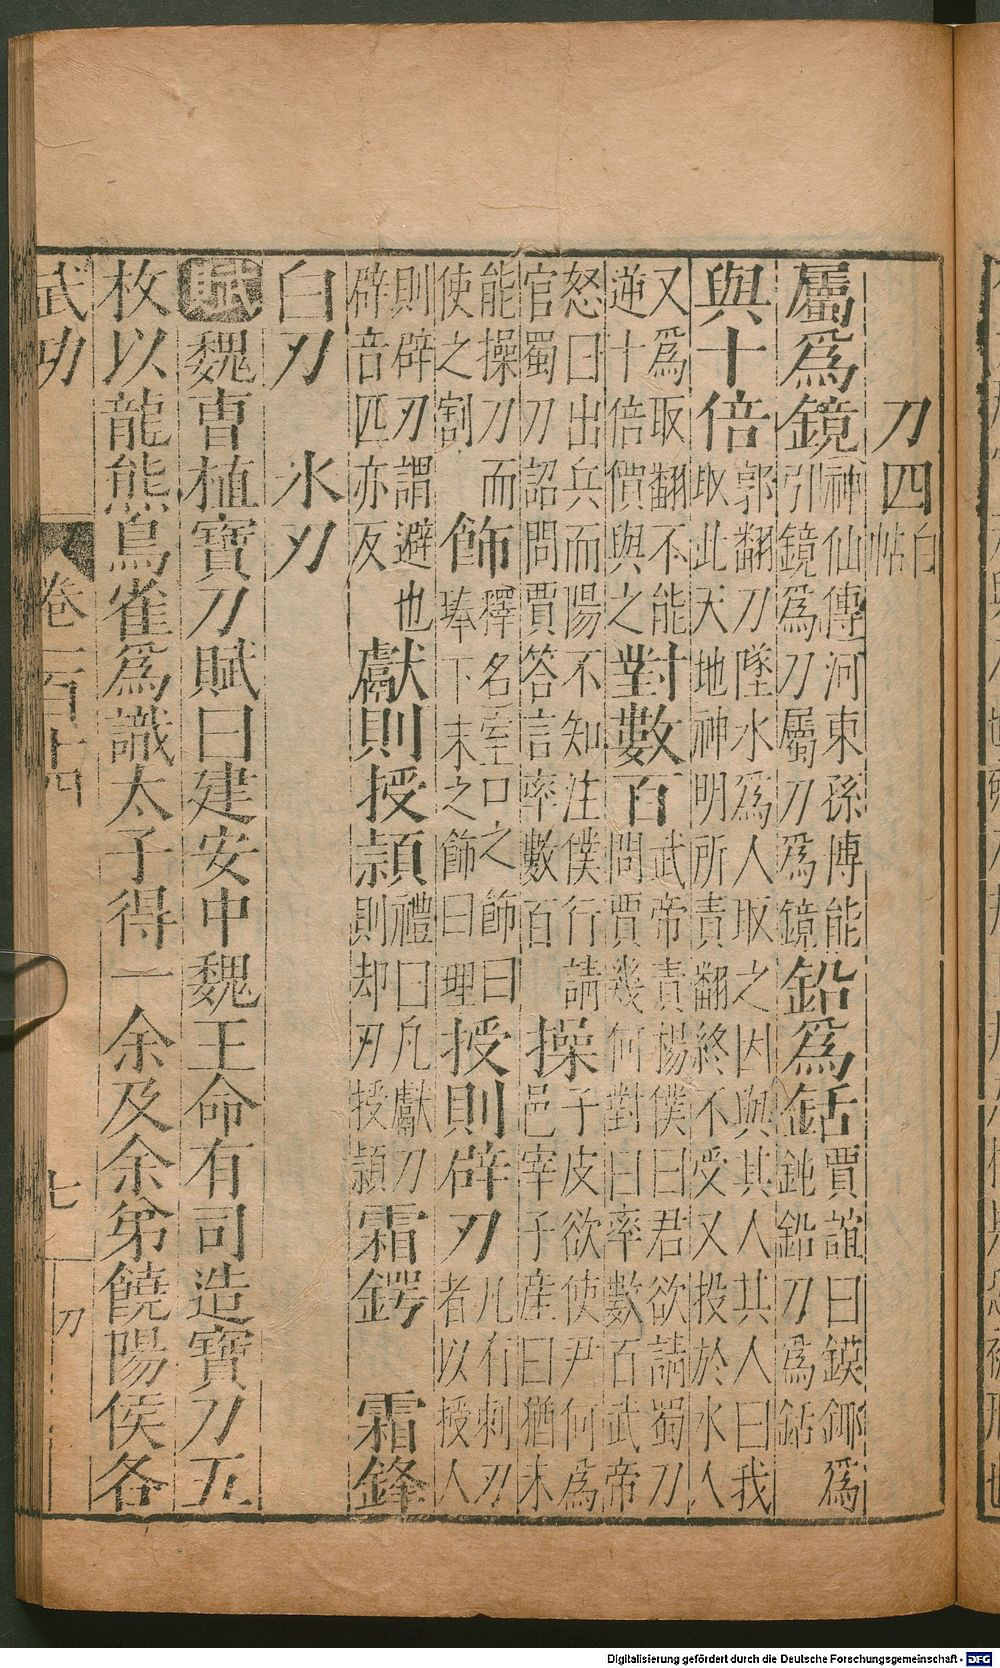 刀四 白帖
屬為鏡 神仙傳河東孫博能引鏡為刀屬刀為鏡 鉛為銛 賈誼曰鏌鋣為鈍鉛刀為銛
與十倍 郭翻刀墜水為人取之因與其人其人曰我取此天地神明所責翻終不受又投於水人
又為取翻不能逆十倍償與之 對數百 武帝責楊僕曰君欲請蜀刀問賈幾何對曰率數百武帝
怒曰出兵而陽不知注僕行請官蜀刀詔問賈答言率數百 操 子皮欲使尹何為邑宰子產曰猶未
能操刀而使之割 飾 釋名室口之飾曰琫下末之飾曰理 授則辟刃 凡有刺刃者以授人
則辟刃謂避也辟音匹亦反 獻則授穎 禮曰凡獻刀則却刃授穎 霜鍔 霜鋒
白刃 水刃
賦魏曹植寶刀賦曰建安中魏王命有司造寶刀五
枚以龍熊鳥雀為識太子得一余及余弟饒陽侯各
武功 卷二百十四 七 刀
Digitalisierung gefördert durch die Deutsche Forschungsgemeinschaft - DFG